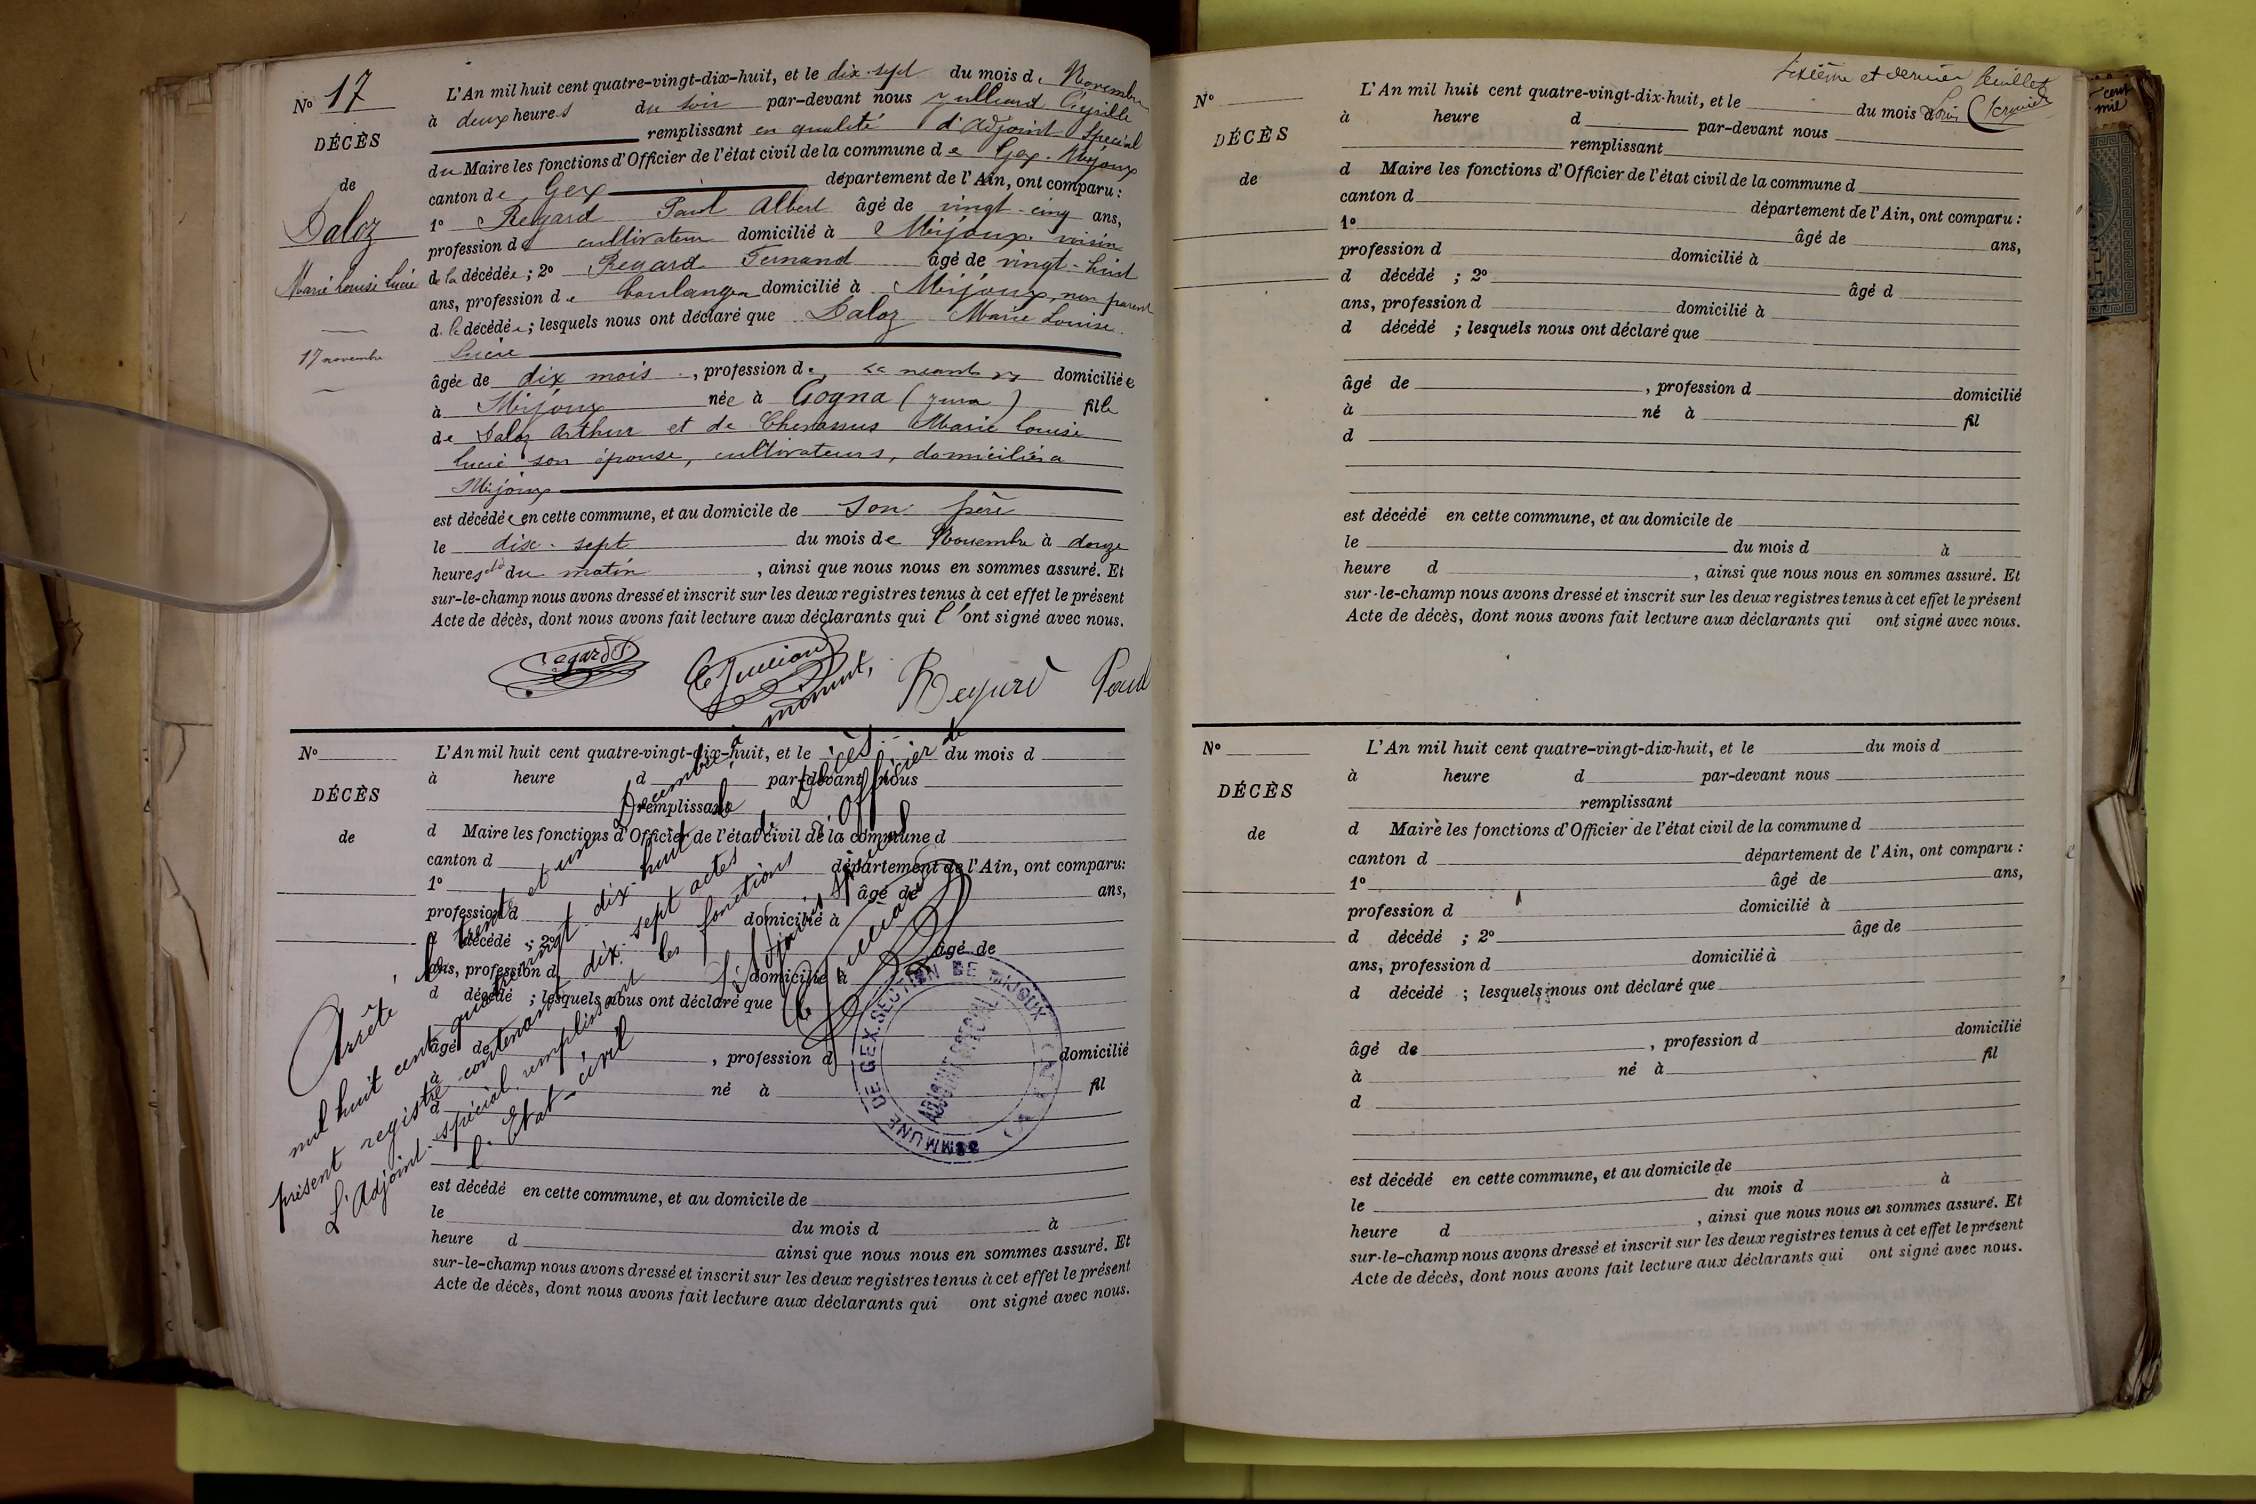 N° 17
DÉCÈS
de
Daloz
Marie Louise Lucie
17 novembre
L'An mil huit cent quatre-vingt-dix-huit, et le dix-sept du mois de Novembre
à deux heures du soir par-devant nous Julliard Cyrille
remplissant en qualité d'Adjoint Spécial
du Maire les fonctions d'Officier de l'état civil de la commune de Gex-Mijoux
canton de Gex département de l'Ain, ont comparu :
1° Regard Paul Albert âgé de vingt-cinq ans,
profession de cultivateur domicilié à Mijoux, voisin
de la décédée ; 2° Regard Fernand âgé de vingt-huit
ans, profession de boulanger domicilié à Mijoux, non parent
d. la décédée ; lesquels nous ont déclaré que Daloz Marie Louise
Lucie
âgée de dix mois, profession de néant domiciliée
à Mijoux née à Cogna (Jura) fille
de Daloz Arthur et de Chenassus Marie Louise
Lucie son épouse, cultivateurs, domiciliés à
Mijoux
est décédée en cette commune, et au domicile de son père
le dix-sept du mois de Novembre à douze
heures du matin, ainsi que nous nous en sommes assuré. Et
sur-le-champ nous avons dressé et inscrit sur les deux registres tenus à cet effet le présent
Acte de décès, dont nous avons fait lecture aux déclarants qui l'ont signé avec nous.
Regard
C Julliard
Regard Paul
N°
DÉCÈS
de
L'An mil huit cent quatre-vingt-dix-huit, et le du mois d
à heure d par-devant nous
remplissant
d Maire les fonctions d'Officier de l'état civil de la commune d
canton d département de l'Ain, ont comparu :
1° âgé de ans,
profession d domicilié à
d décédé ; 2° âgé de
ans, profession d domicilié à
d décédé ; lesquels nous ont déclaré que
âgé de , profession d domicilié
à né à fil
d
est décédé en cette commune, et au domicile de
le du mois d à
heure d ainsi que nous nous en sommes assuré. Et
sur-le-champ nous avons dressé et inscrit sur les deux registres tenus à cet effet le présent
Acte de décès, dont nous avons fait lecture aux déclarants qui ont signé avec nous.
Arrêté le trente et un Décembre
mil huit cent quatre-vingt-dix-huit le
présent registre contenant dix-sept actes de Décès
L'Adjoint-spécial remplissant les fonctions d'Officier de
l'Etat-civil
L'Adjoint Spécial
C Julliard
COMMUNE DE GEX. SECTION DE MIJOUX
ADJOINT SPECIAL
Sixième et dernier feuillet
N°
DÉCÈS
de
L'An mil huit cent quatre-vingt-dix-huit, et le du mois d
à heure d par-devant nous
remplissant
d Maire les fonctions d'Officier de l'état civil de la commune d
canton d département de l'Ain, ont comparu :
1° âgé de ans,
profession d domicilié à
d décédé ; 2° âgé d
ans, profession d domicilié à
d décédé ; lesquels nous ont déclaré que
âgé de , profession d domicilié
à né à fil
d
est décédé en cette commune, et au domicile de
le du mois d à
heure d , ainsi que nous nous en sommes assuré. Et
sur-le-champ nous avons dressé et inscrit sur les deux registres tenus à cet effet le présent
Acte de décès, dont nous avons fait lecture aux déclarants qui ont signé avec nous.
N°
DÉCÈS
de
L'An mil huit cent quatre-vingt-dix-huit, et le du mois d
à heure d par-devant nous
remplissant
d Maire les fonctions d'Officier de l'état civil de la commune d
canton d département de l'Ain, ont comparu :
1° âgé de ans,
profession d domicilié à
d décédé ; 2° âge de
ans, profession d domicilié à
d décédé ; lesquels nous ont déclaré que
âgé de , profession d domicilié
à né à fil
d
est décédé en cette commune, et au domicile de
le du mois d à
heure d , ainsi que nous nous en sommes assuré. Et
sur-le-champ nous avons dressé et inscrit sur les deux registres tenus à cet effet le présent
Acte de décès, dont nous avons fait lecture aux déclarants qui ont signé avec nous.